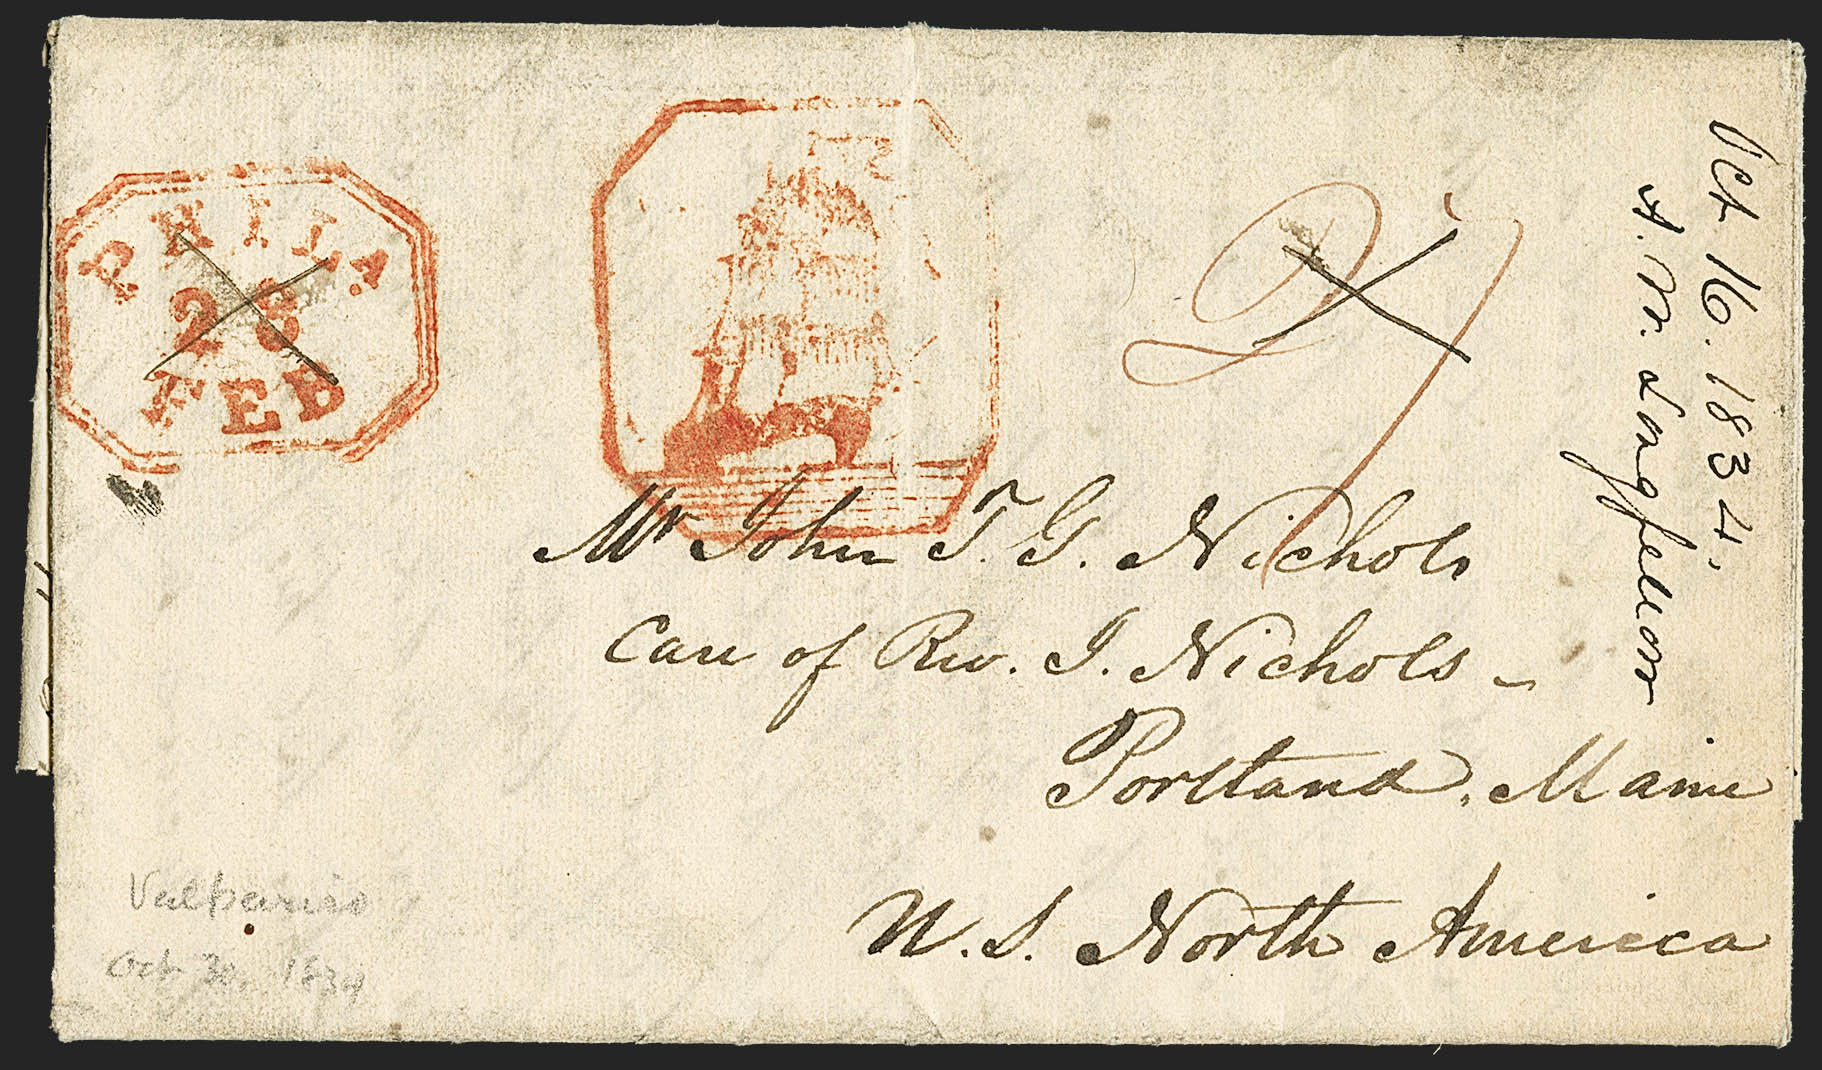 PHILA
28
FEB
27
Mr John T. G. Nichols
Care of Rev. I. Nichols -
Portland, Maine
U. S. North America
Oct 16. 1834.
A. W. Longfellow
Valparaiso
Oct 30, 1834